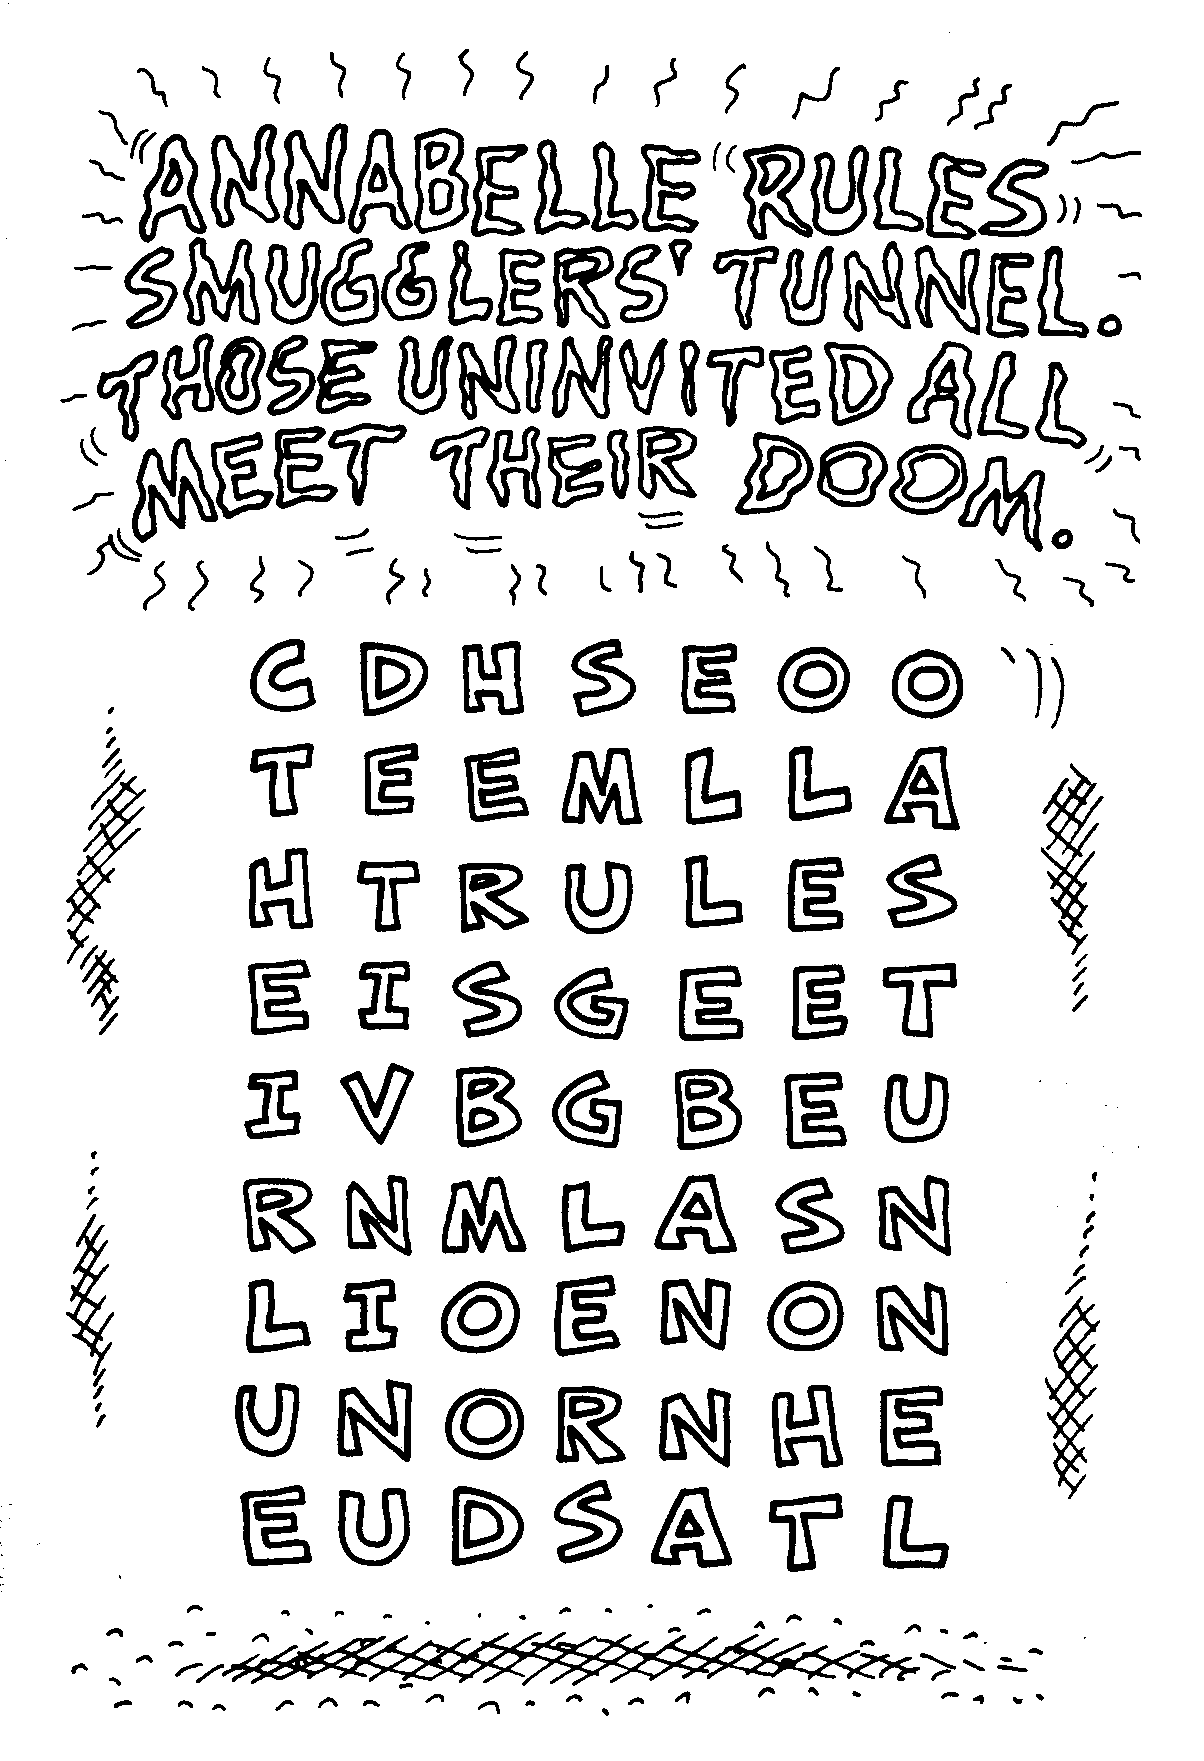 ANNABELLE RULES
SMUGGLERS' TUNNEL.
THOSE UNINVITED ALL
MEET THEIR DOOM.
C D H S E O O
T E E M L L A
H T R U L E S
E I S G E E T
I V B G B E U
R N M L A S N
L I O E N O N
U N O R N H E
E U D S A T L